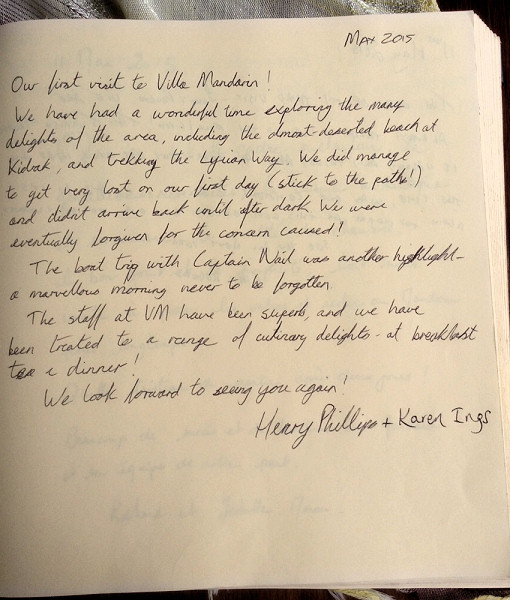 May 2015
Our first visit to Villa Mandarin!
We have had a wonderful time exploring the many
delights of the area, including the almost-deserted beach at
Kidrak, and trekking the Lycian Way. We did manage
to get very lost on our first day (stick to the paths!)
and didn't arrive back until after dark. We were
eventually forgiven for the concern caused!
The boat trip with Captain Nail was another highlight -
a marvellous morning never to be forgotten.
The staff at VM have been superb, and we have
been treated to a range of culinary delights - at breakfast
tea & dinner!
We look forward to seeing you again!
Henry Phillips + Karen Ings